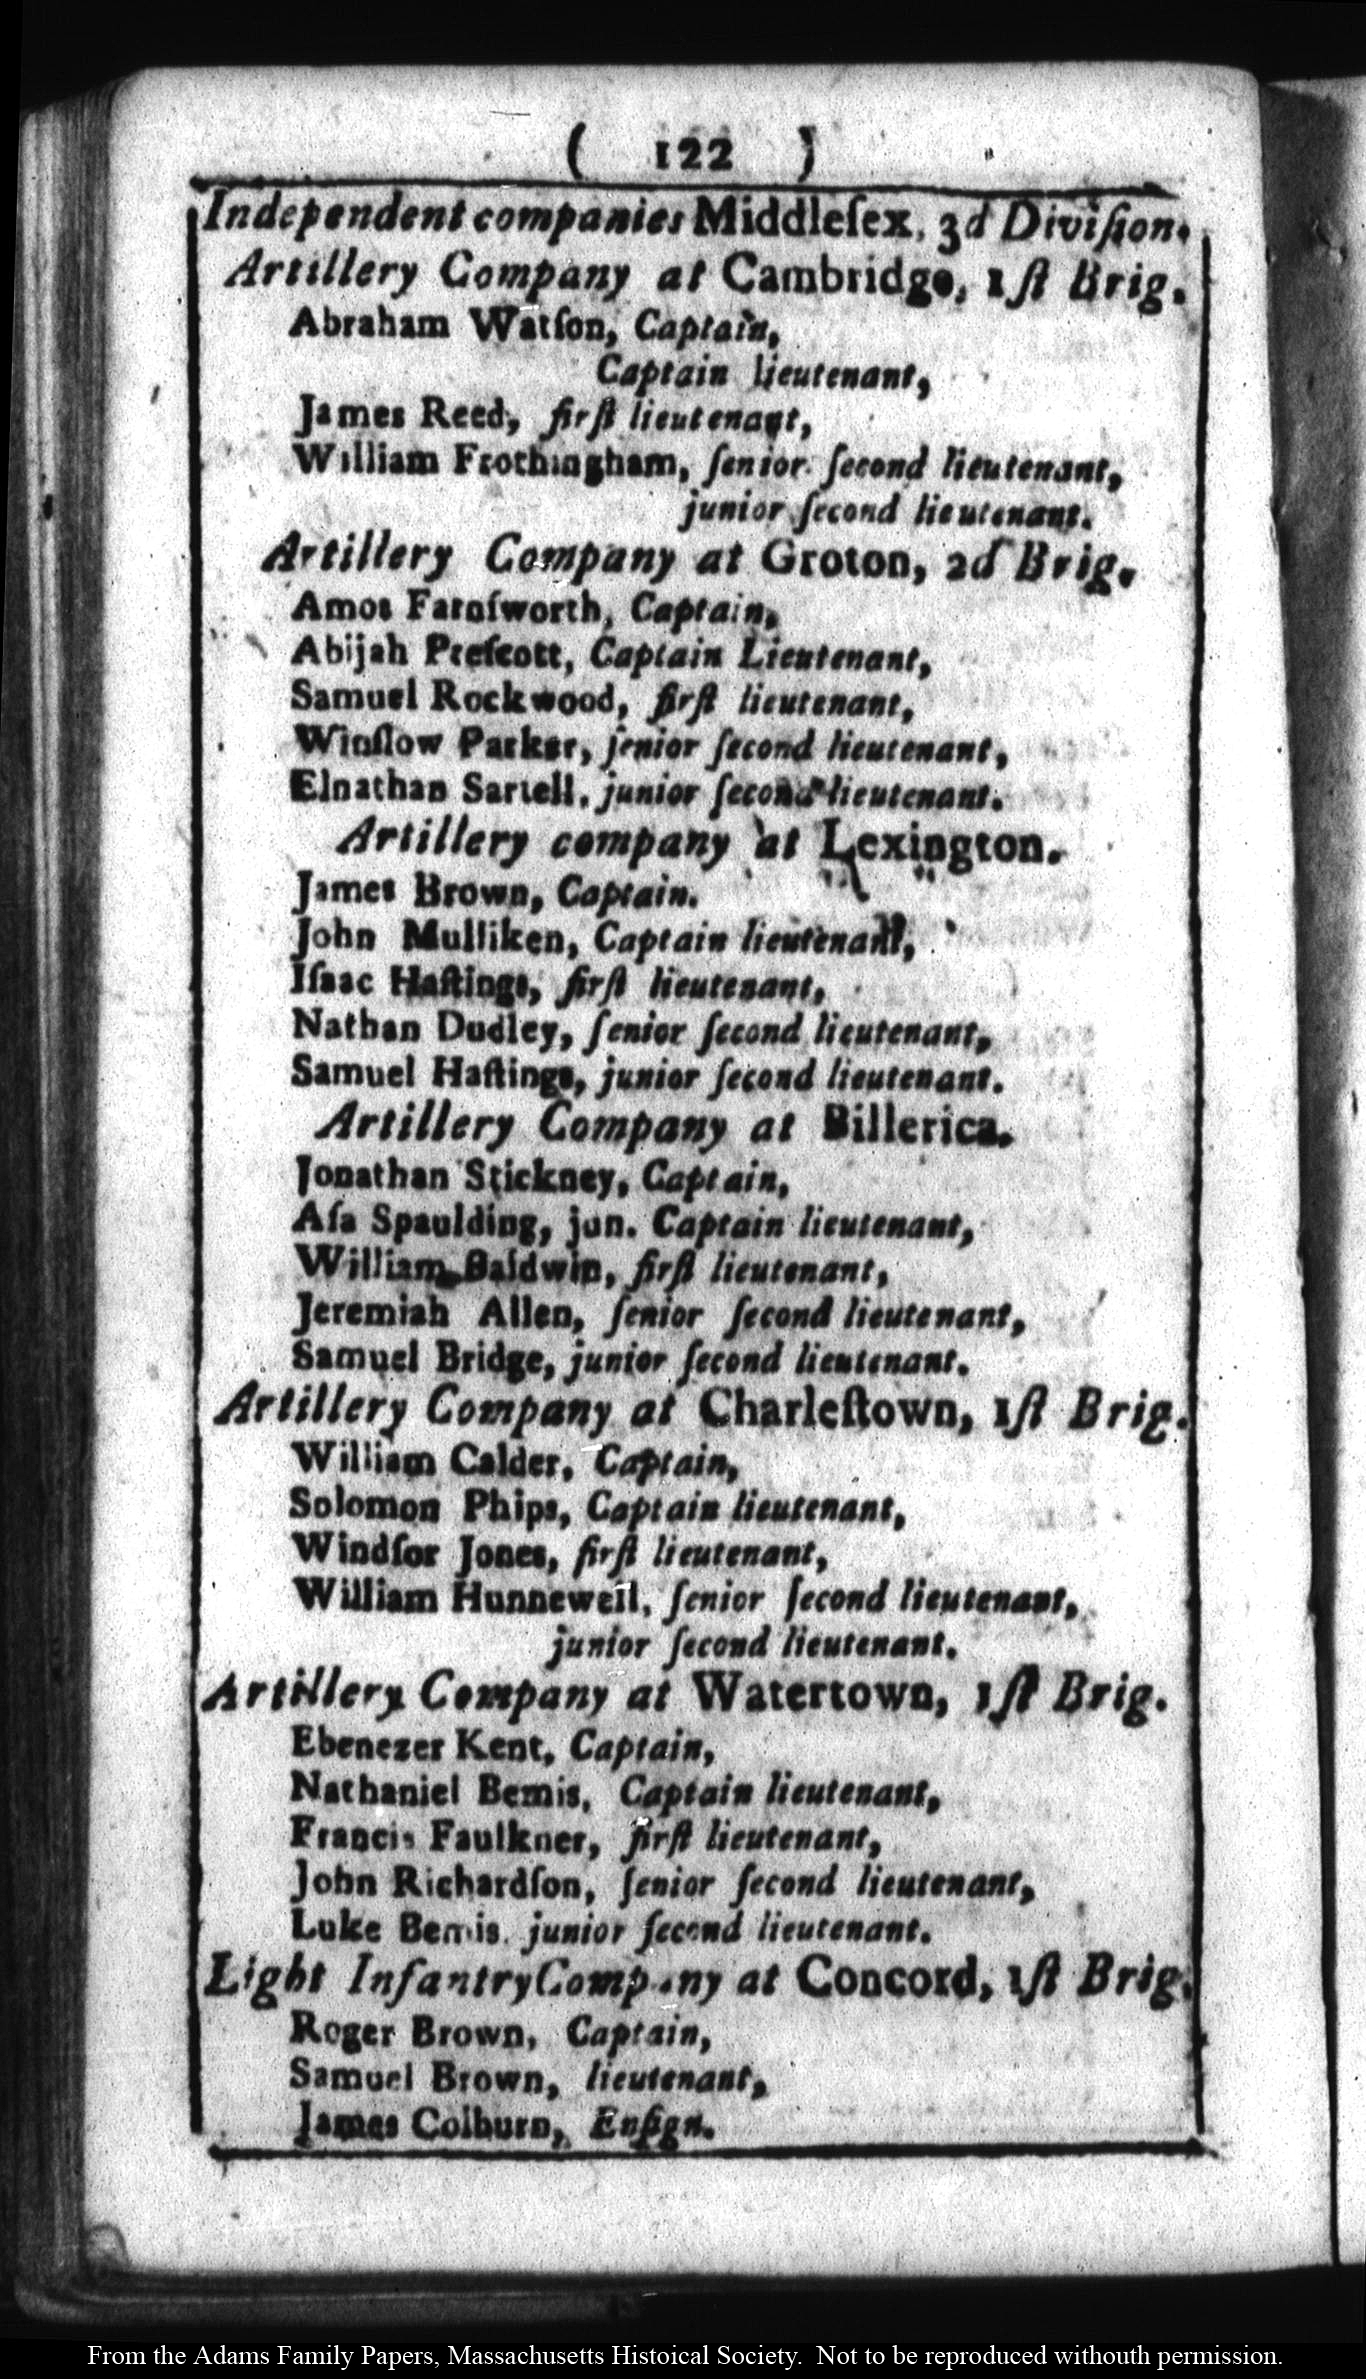 ( 122 )
Independent companies Middleſex, 3d Diviſion.
Artillery Company at Cambridge, 1ſt Brig.
Abraham Watſon, Captain,
Captain lieutenant,
James Reed, firſt lieutenant,
William Frothingham, ſenior ſecond lieutenant,
junior ſecond lieutenant.
Artillery Company at Groton, 2d Brig.
Amos Farnſworth, Captain,
Abijah Preſcott, Captain Lieutenant,
Samuel Rockwood, firſt lieutenant,
Winſlow Parker, ſenior ſecond lieutenant,
Elnathan Sartell, junior ſecond lieutenant.
Artillery company at Lexington.
James Brown, Captain.
John Mulliken, Captain lieutenant,
Iſaac Haſtings, firſt lieutenant,
Nathan Dudley, ſenior ſecond lieutenant,
Samuel Haſtings, junior ſecond lieutenant.
Artillery Company at Billerica.
Jonathan Stickney, Captain,
Aſa Spaulding, jun. Captain lieutenant,
William Baldwin, firſt lieutenant,
Jeremiah Allen, ſenior ſecond lieutenant,
Samuel Bridge, junior ſecond lieutenant.
Artillery Company at Charleſtown, 1ſt Brig.
William Calder, Captain,
Solomon Phips, Captain lieutenant,
Windſor Jones, firſt lieutenant,
William Hunnewell, ſenior ſecond lieutenant,
junior ſecond lieutenant.
Artillery Company at Watertown, 1ſt Brig.
Ebenezer Kent, Captain,
Nathaniel Bemis, Captain lieutenant,
Francis Faulkner, firſt lieutenant,
John Richardſon, ſenior ſecond lieutenant,
Luke Bemis, junior ſecond lieutenant.
Light Infantry Company at Concord, 1ſt Brig.
Roger Brown, Captain,
Samuel Brown, lieutenant,
James Colburn, Enſign.
From the Adams Family Papers, Massachusetts Histoical Society.  Not to be reproduced withouth permission.